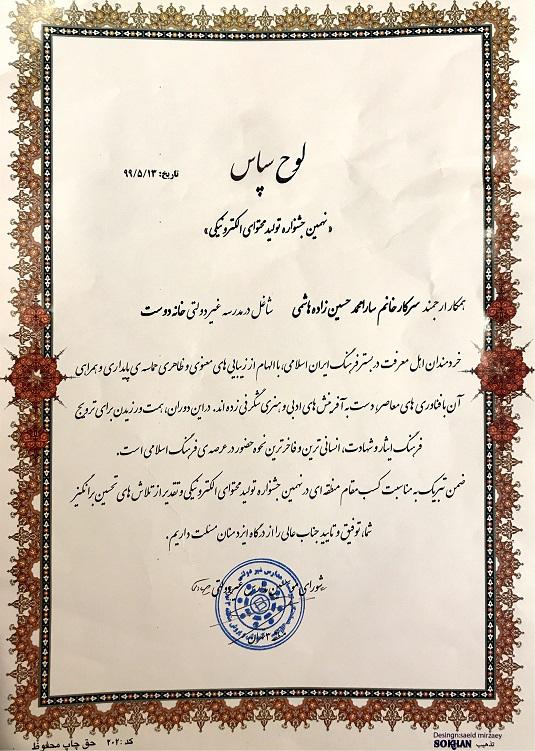 لوح سپاس
تاریخ: ۹۹/۵/۱۳
«نهمین جشنواره تولید محتوای الکترونیکی»
همکار ارجمند سرکار خانم سارا محمد حسین زاده هاشمی شاغل در مدرسه غیردولتی خانه دوست
خردمندان اهل معرفت در بستر فرهنگ ایران اسلامی، با الهام از زیبایی های معنوی و ظاهری حماسه ی پایداری و همراهی
آن با فناوری های معاصر، دست به آفرینش های ادبی و هنری شگرفی زده اند. در این دوران، همت ورزیدن برای ترویج
فرهنگ ایثار و شهادت، انسانی ترین و فاخرترین نحوه حضور در عرصه ی فرهنگ اسلامی است.
ضمن تبریک به مناسبت کسب مقام منطقه ای در نهمین جشنواره تولید محتوای الکترونیکی و تقدیر از تلاش های تحسین برانگیز
شما، توفیق و تایید جناب عالی را از درگاه ایزد منان مسئلت داریم.
شورای
کد: ۲۰۲ حق چاپ محفوظ
Desingn:saeid mirzaey
تذهیب SOKHAN